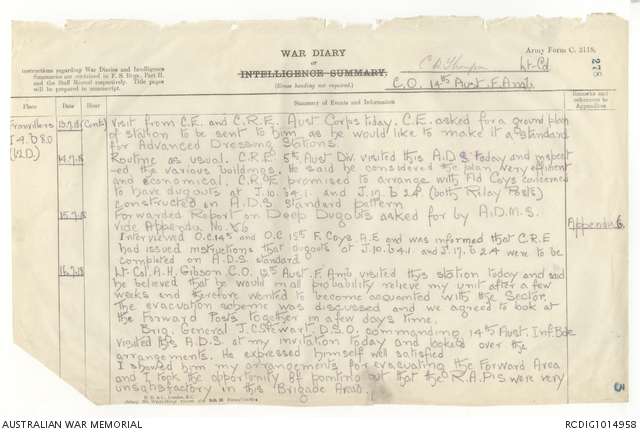 WAR DIARY
or
INTELLIGENCE SUMMARY.
(Erase heading not required.)
Army Form C. 2118.
Instructions regarding War Diaries and Intelligence
Summaries are contained in F. S. Regs., Part II.
and the Staff Manual respectively. Title pages
will be prepared in manuscript.
Lt Col
C.O. 14th Aust. F. Amb
278
Place
Date
Hour
Summary of Events and Information
Remarks and
references to
Appendices
J.4.b.8.0
(62D)
13.7.18 (Contd) Visit from C.E. and C.R.E. Aust Corps today. C.E. asked for a ground plan
of station to be sent to him as he would like to make it a standard
for Advanced Dressing Stations.
14.7.18 Routine as usual. C.R.E. 5th Aust Div. visited this A.D.S today and inspect
-ed the various buildings. He said he considered the plan very efficient
and economical. C.R.E. promised to arrange with Fld Coys concerned
to have dugouts at J.10.b.4.1 and J.17.b.2.4 (both Relay Posts)
constructed on A.D.S. standard pattern
15.7.18 Forwarded Report on Deep Dugouts asked for by A.D.M.S.
vide Appendix No. 6
Appendix 6.
Interviewed O.C. 14th and O.C 15th F. Coys. A.E and was informed that C.R.E
had issued instructions that dugouts at J.10.b.4.1 and J.17.b.2.4 were to be
completed on A.D.S. standard
16.7.18 Lt. Col. A.H. Gibson C.O. 15th Aust. F. Amb visited this station today and said
he believed that he would in all probability relieve my unit after a few
weeks and therefore wanted to become acquainted with the Sector.
The evacuation scheme was discussed and we agreed to look at
the Forward Posts together in a few days time.
Brig. General J.C. Stewart. D.S.O. commanding 14th Aust. Inf. Bde
visited this A.D.S. at my invitation today and looked over the
arrangements. He expressed himself well satisfied
I showed him my arrangements for evacuating the Forward Area
and I took the opportunity of pointing out that the R.A.P's were very
unsatisfactory in this Brigade Area.
AUSTRALIAN WAR MEMORIAL
RCDIG1014958